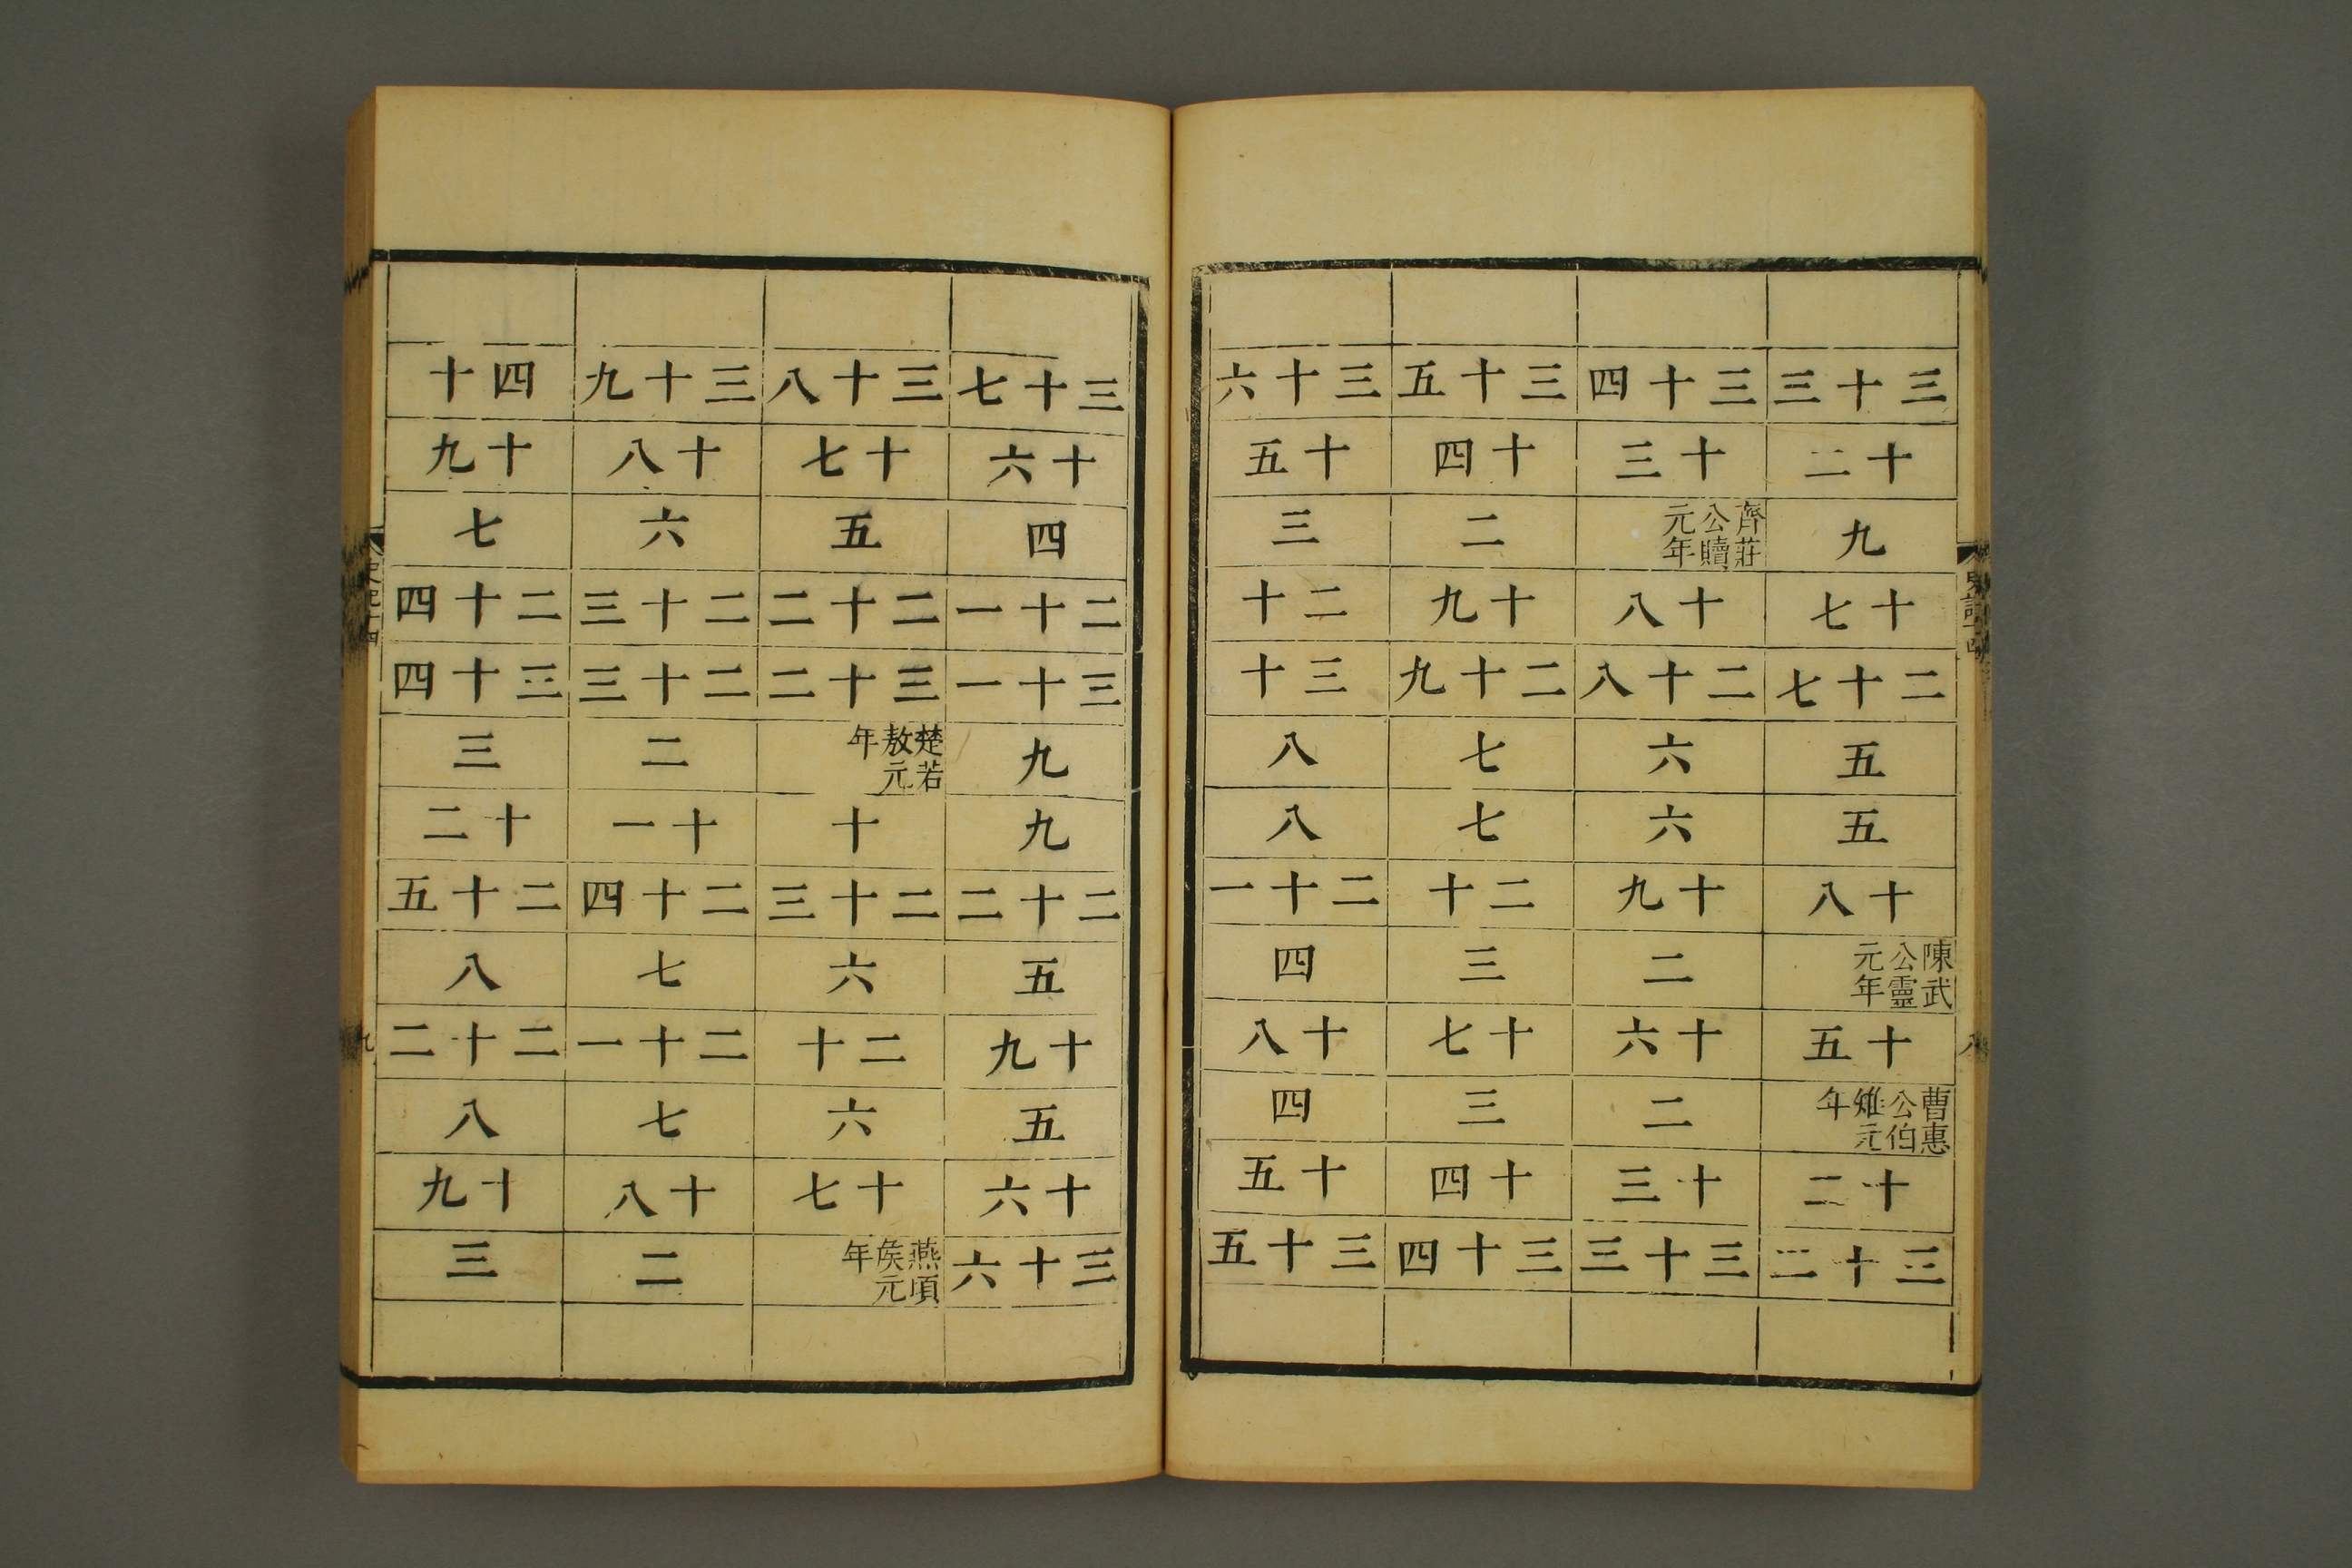 史記十四
八
三十三
十二
九
十七
二十七
五
五
十八
陳武公靈元年
十五
曹惠公伯雉元年
十二
三十二
三十四
十三
齊莊公贖元年
十八
二十八
六
六
十九
二
十六
二
十三
三十三
三十五
十四
二
十九
二十九
七
七
二十
三
十七
三
十四
三十四
三十六
十五
三
二十
三十
八
八
二十一
四
十八
四
十五
三十五
三十七
十六
四
二十一
三十一
九
九
二十二
五
十九
五
十六
三十六
三十八
十七
五
二十二
三十二
楚若敖元年
十
二十三
六
二十
六
十七
燕頃矦元年
三十九
十八
六
二十三
二十三
二
十一
二十四
七
二十一
七
十八
二
四十
十九
七
二十四
三十四
三
十二
二十五
八
二十二
八
十九
三
史記十四
九